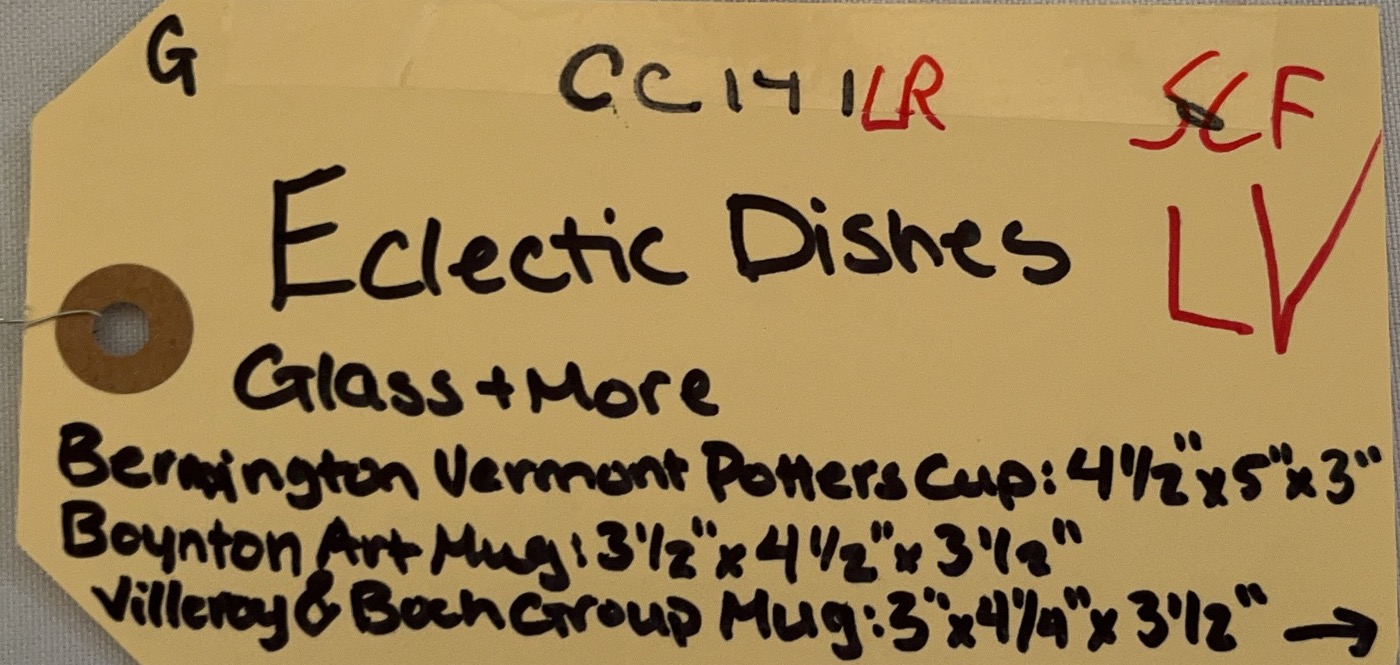 G
CC141LR SCF
LV
Eclectic Dishes
Glass + More
Bennington Vermont Potters Cup: 4 1/2" x 5" x 3"
Boynton Art Mug: 3 1/2" x 4 1/2" x 3 1/2"
Villeroy & Boch Group Mug: 3" x 4 1/4" x 3 1/2" →